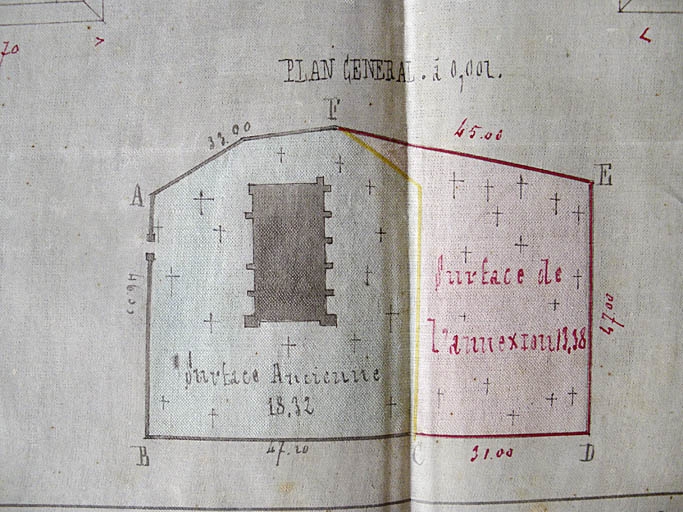 70
PLAN GENERAL. à 0,002.
F
33.00
45.00
A
E
Surface de
l'annexion 13,38
47.00
Surface Ancienne
18,32
B
47.20
C
31.00
D